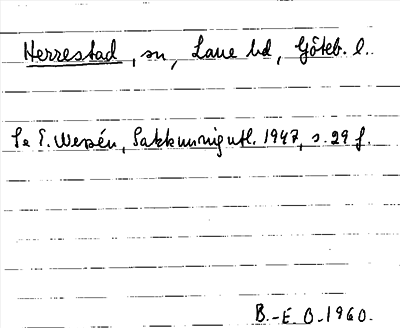 Herrestad, sn, Lane hd, Göteb. l.
Se E. Wessén, Sakkunnigutl. 1947, s. 29 f.
B.-E. O. 1960.